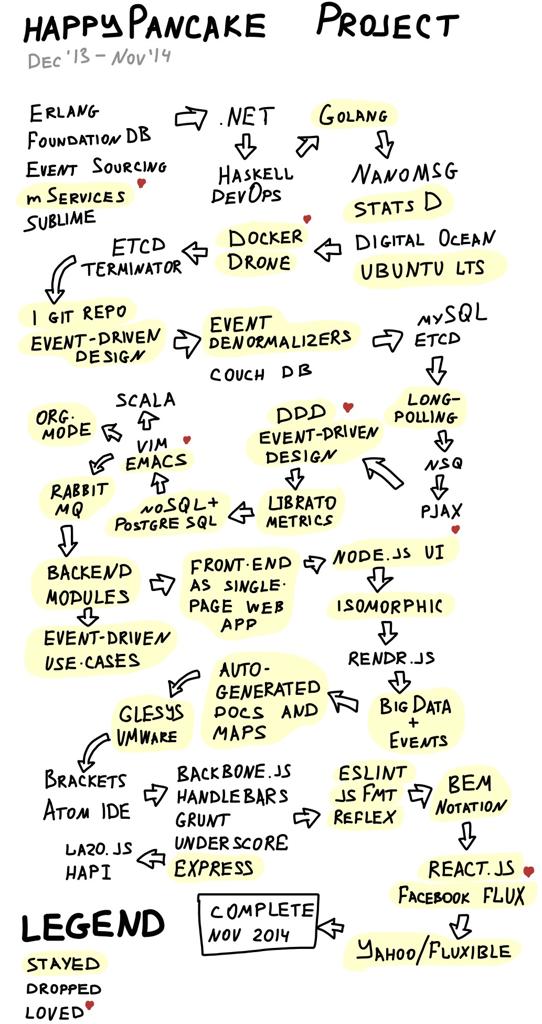 HAPPYPANCAKE PROJECT
DEC '13 – NOV '14
ERLANG
FOUNDATION DB
EVENT SOURCING
mSERVICES
SUBLIME
.NET
HASKELL
DEVOPS
GOLANG
NANOMSG
STATS D
DIGITAL OCEAN
UBUNTU LTS
DOCKER
DRONE
ETCD
TERMINATOR
1 GIT REPO
EVENT-DRIVEN
DESIGN
EVENT
DENORMALIZERS
COUCH DB
MYSQL
ETCD
LONG-
POLLING
NSQ
PJAX
DDD
EVENT-DRIVEN
DESIGN
LIBRATO
METRICS
NOSQL+
POSTGRESQL
VIM
EMACS
SCALA
ORG.
MODE
RABBIT
MQ
BACKEND
MODULES
EVENT-DRIVEN
USE-CASES
FRONT-END
AS SINGLE-
PAGE WEB
APP
NODE.JS UI
ISOMORPHIC
RENDR.JS
BIG DATA
+
EVENTS
AUTO-
GENERATED
DOCS AND
MAPS
GLESYS
VMWARE
BRACKETS
ATOM IDE
BACKBONE.JS
HANDLEBARS
GRUNT
UNDERSCORE
EXPRESS
LAZO.JS
HAPI
ESLINT
JS FMT
REFLEX
BEM
NOTATION
REACT.JS
FACEBOOK FLUX
YAHOO/FLUXIBLE
COMPLETE
NOV 2014
LEGEND
STAYED
DROPPED
LOVED